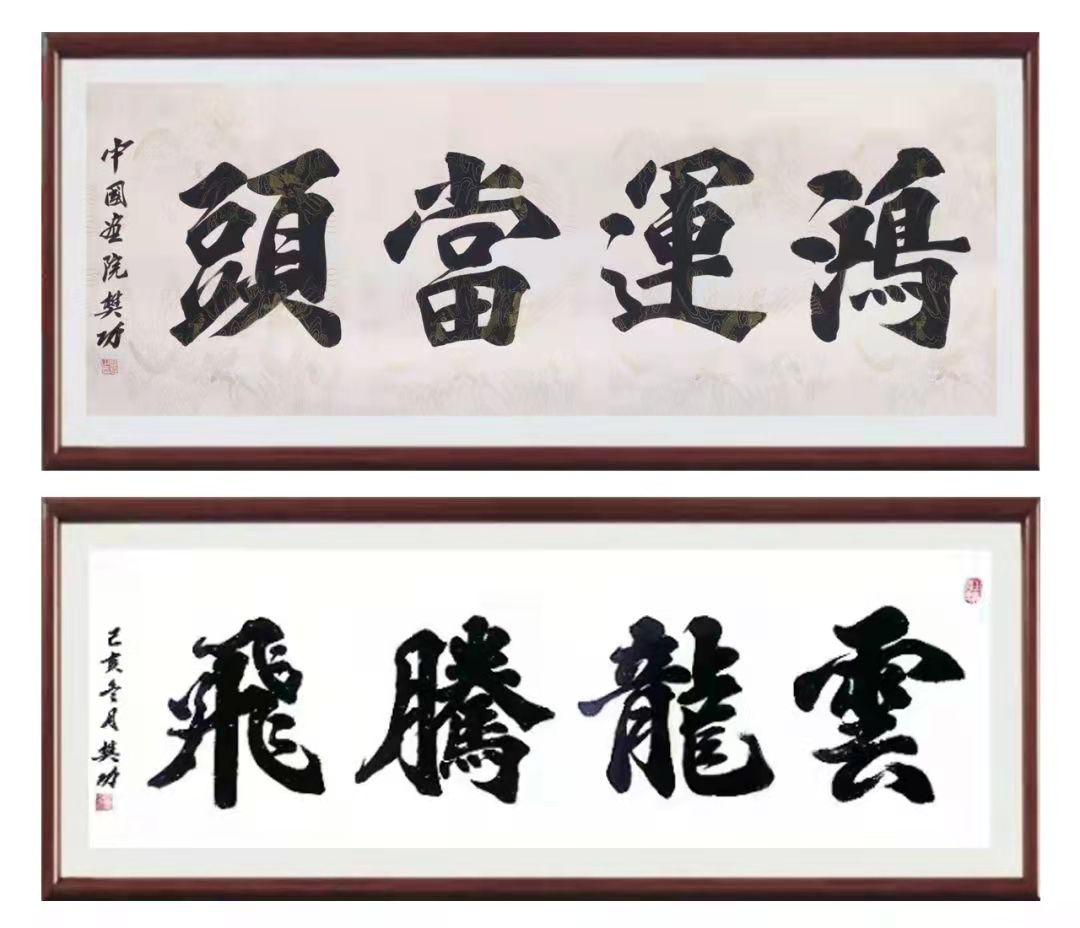 鴻運當頭
中國畫院樊功
雲龍騰飛
己亥冬月樊功